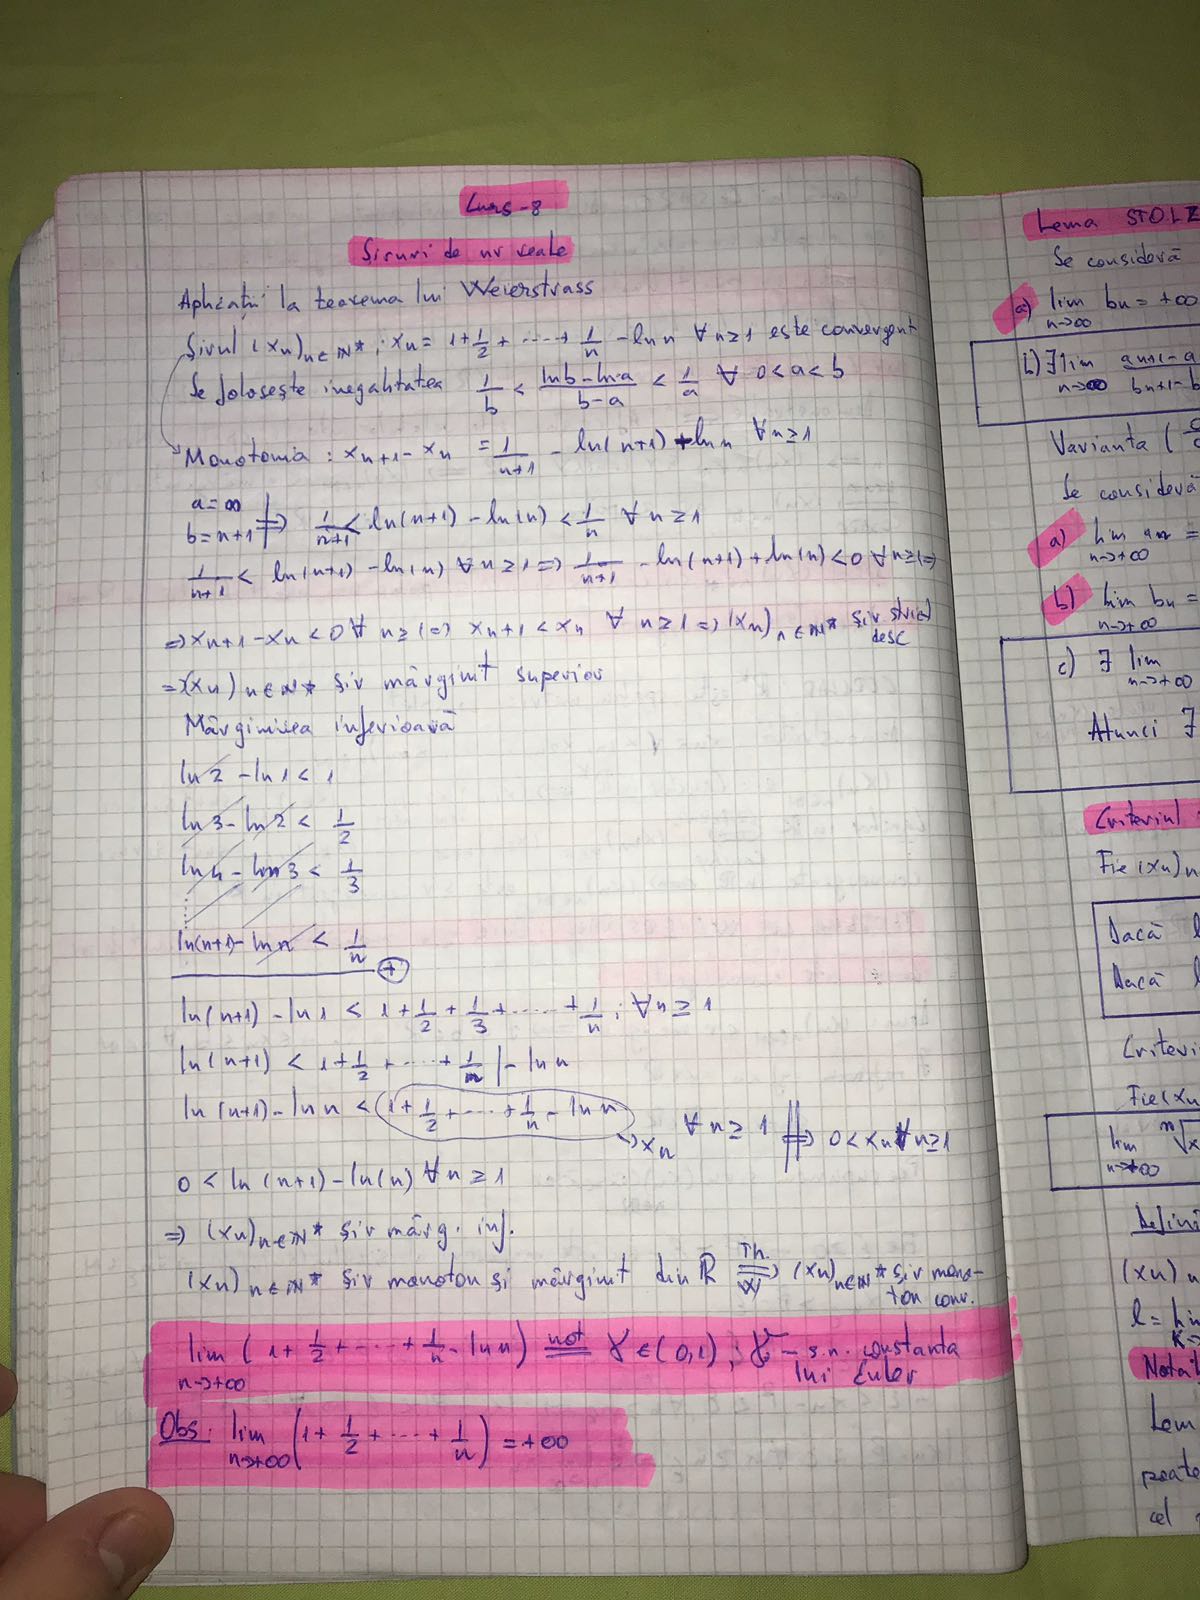 Curs-8
Șiruri de nr reale
Aplicații la teorema lui Weierstrass
Șirul (xn)n∈ℕ*; xn = 1+1/2+.....+1/n - ln n ∀ n≥1 este convergent
Se folosește inegalitatea 1/b < (ln b - ln a)/(b-a) < 1/a ∀ 0<a<b
Monotonia : xn+1 - xn = 1/(n+1) - ln(n+1) + ln n ∀n≥1
a = ∞
b = n+1 ⇒ 1/(n+1) < ln(n+1) - ln(n) < 1/n ∀ n≥1
1/(n+1) < ln(n+1) - ln(n) ∀ n≥1 => 1/(n+1) - ln(n+1) + ln(n) < 0 ∀ n≥1 =>
=> xn+1 - xn < 0 ∀ n≥1 => xn+1 < xn ∀ n≥1 => (xn)n∈ℕ* șir strict
desc
=> (xn)n∈ℕ* șir mărginit superior
Mărginirea inferioară
ln 2 - ln 1 < 1
ln 3 - ln 2 < 1/2
ln 4 - ln 3 < 1/3
ln(n+1) - ln n < 1/n
+
ln(n+1) - ln 1 < 1 + 1/2 + 1/3 + ..... + 1/n ; ∀n≥1
ln(n+1) < 1 + 1/2 + ... + 1/n | - ln n
ln(n+1) - ln n < 1 + 1/2 + ... + 1/n - ln n → xn ∀ n≥1 ⇒ 0 < xn ∀ n≥1
0 < ln(n+1) - ln(n) ∀ n≥1
=> (xn)n∈ℕ* șir mărg. inf.
(xn)n∈ℕ* șir monoton și mărginit din ℝ Th. W ⇒ (xn)n∈ℕ* șir mono-
ton conv.
lim n→+∞ (1 + 1/2 + ... + 1/n - ln n) not = γ ∈ (0,1) ; γ - s.n. constanta
lui Euler
Obs: lim n→+∞ (1 + 1/2 + ... + 1/n) = +∞
Lema STOLZ
Se consideră
a) lim n→∞ bn = +∞
b) ∃ lim n→∞ (an+1 - a / bn+1 - b
Varianta (
Se consideră
a) lim n→+∞ an =
b) lim n→+∞ bn =
c) ∃ lim n→+∞
Atunci ∃
Criteriul
Fie (xn)n
Dacă l
Dacă l
Criteri
Fie (xn
lim n→+∞ n√x
Defini
(xn) n
l = lim
Notaț
Lem
poate
cel